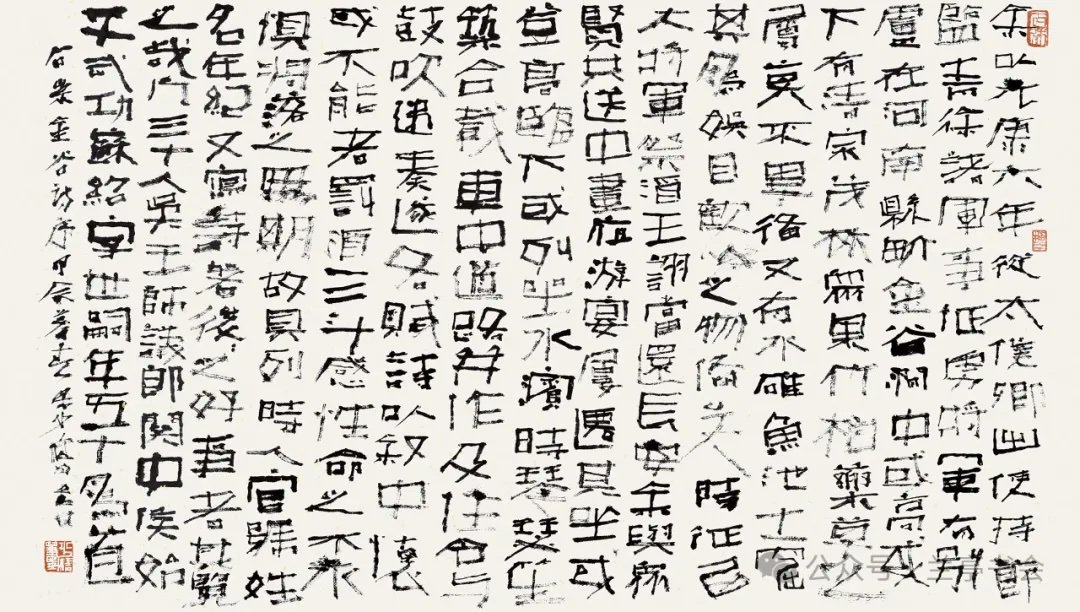 余以元康六年從太僕卿出使持節
監青徐諸軍事征虜將軍有別
廬在河南縣界金谷澗中或高或
下有清泉茂林眾果竹柏藥草之
屬莫不畢後又有水碓魚池土窟
其為娛目歡心之物備矣時征西
大將軍祭酒王詡當還長安余與眾
賢共送中晝夜游宴屢遷其坐或
登高臨下或列坐水濱時琴瑟笙
築合載車中道路并作及住令与
鼓吹遞奏遂各賦詩以敘中懷
或不能者罰酒三斗感性命之不永
懼凋落之無期故具列時人官號姓
名年紀又寫詩著後之好事者其覽
之哉凡三十人吳王師議郎關中侯始
平武功蘇紹字世嗣年五十為首
石崇金谷詩序甲辰暮春
公众号